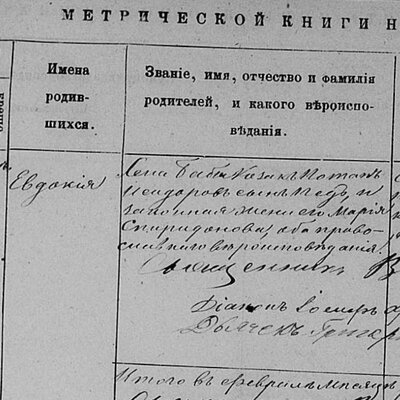 МЕТРИЧЕСКОЙ КНИГИ Н
Имена
родив-
шихся.
Званіе, имя, отчество и фамилія
родителей, и какого вѣроиспо-
вѣданія.
Евдокія
Села Бабы Козакъ Потапъ
Ѳеодоровъ сынъ и
законная жена его Марія
Спиридонова, оба право-
славнаго вѣроисповѣданія.
Священникъ
Діаконъ
Дьячекъ
Итого въ февралѣ мѣсяц